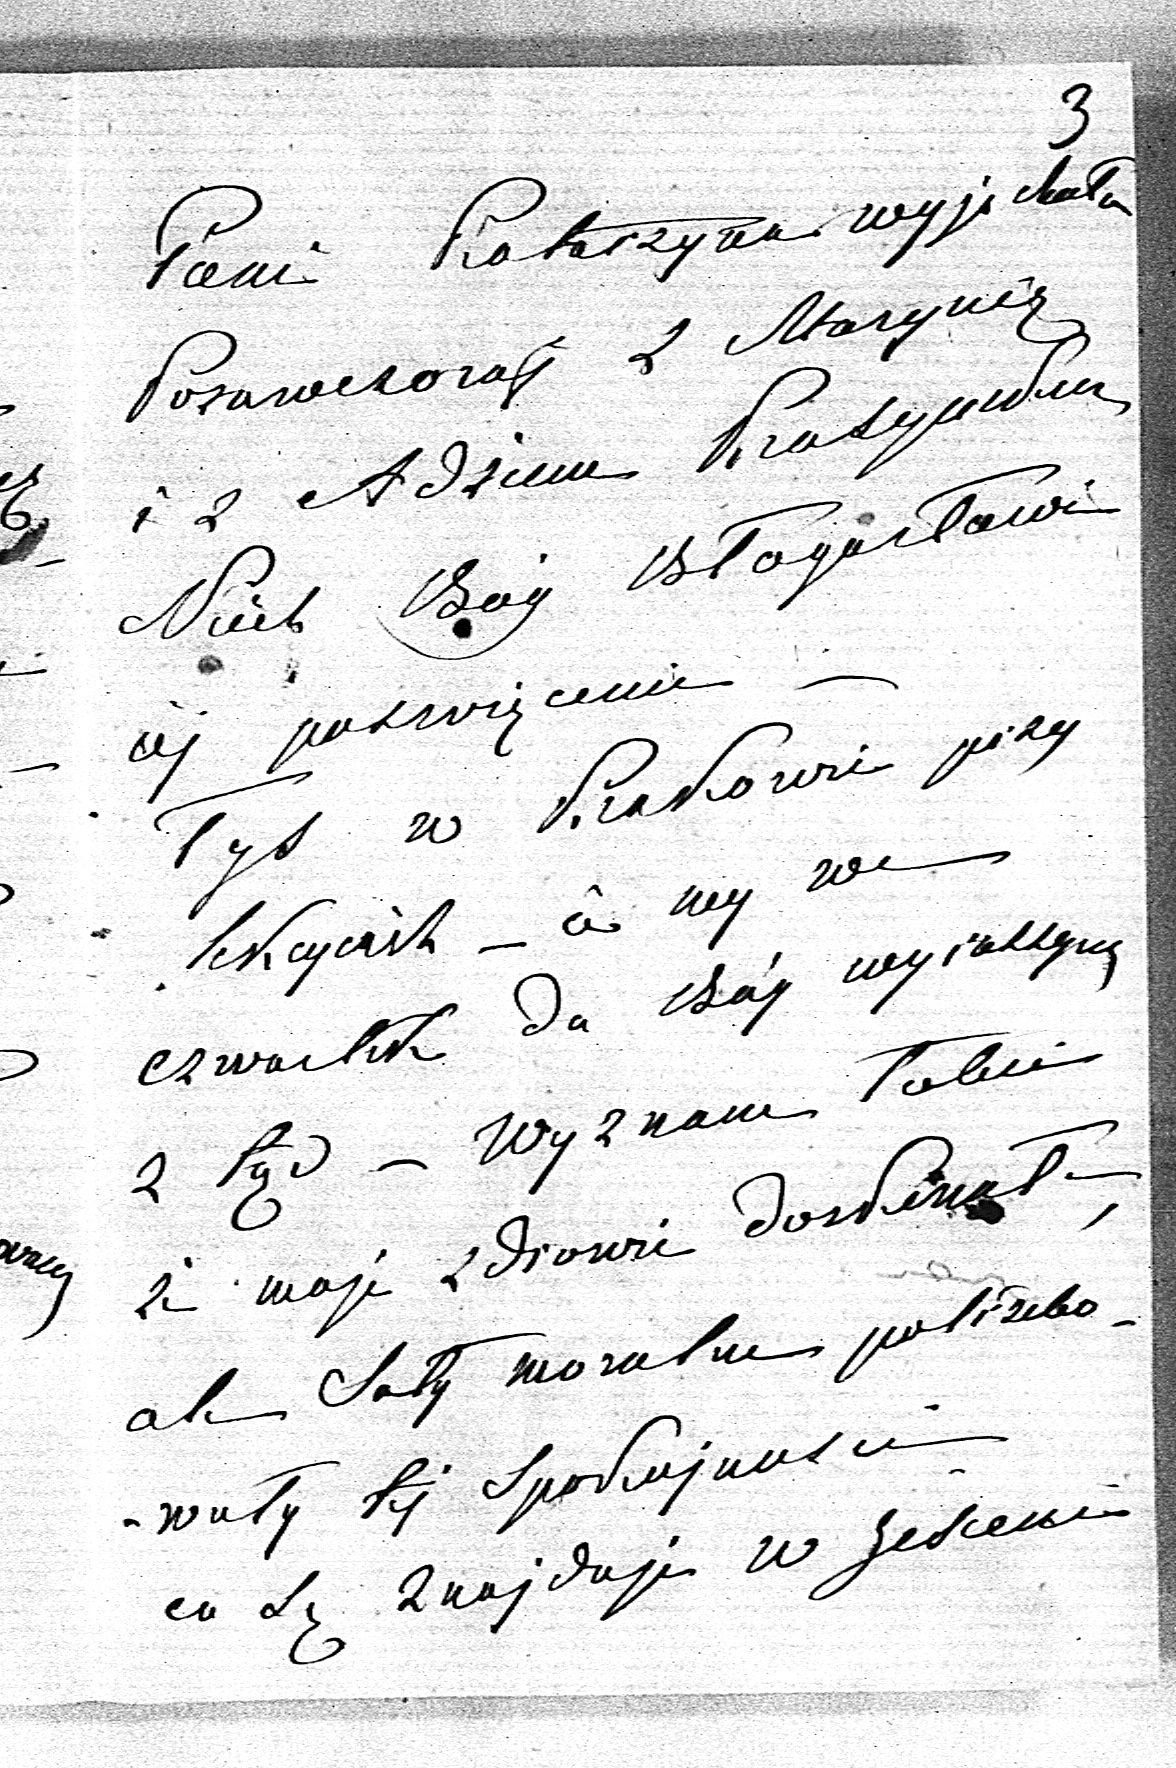 3
Pani Katarzyna wyjechała
Pozawczoraj z Marynią
i z Adziem Krasyńskim
Niech Bóg Błogosławi
jéj poswięcenie —
Tyś w Krakowie przy
lekcyach — a my we
czwartek da Bóg wyruszymy
z tąd — Wyznam Tobie
że moje zdrowie doskonałe,
ale Siły moralne potrzebo-
-wały téj Spokojnosci
co Się znajduje w